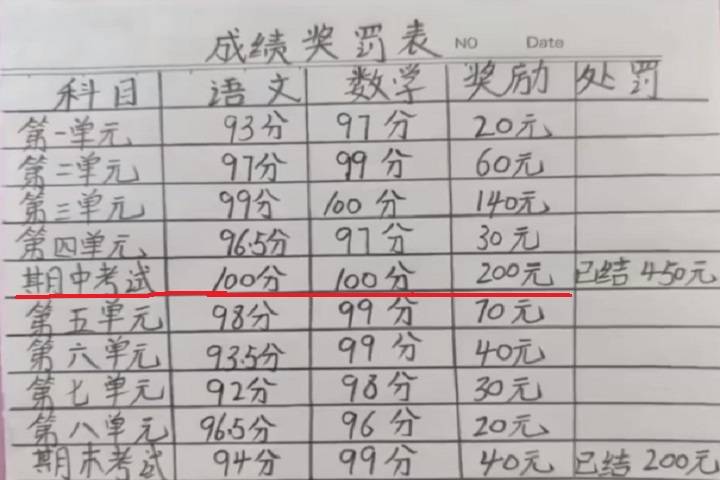 成绩奖罚表 NO Date
科目 语文 数学 奖励 处罚
第一单元 93分 97分 20元
第二单元 97分 99分 60元
第三单元 99分 100分 140元
第四单元 96.5分 97分 30元
期中考试 100分 100分 200元 已结450元
第五单元 98分 99分 70元
第六单元 93.5分 99分 40元
第七单元 92分 98分 30元
第八单元 96.5分 96分 20元
期末考试 94分 99分 40元 已结200元